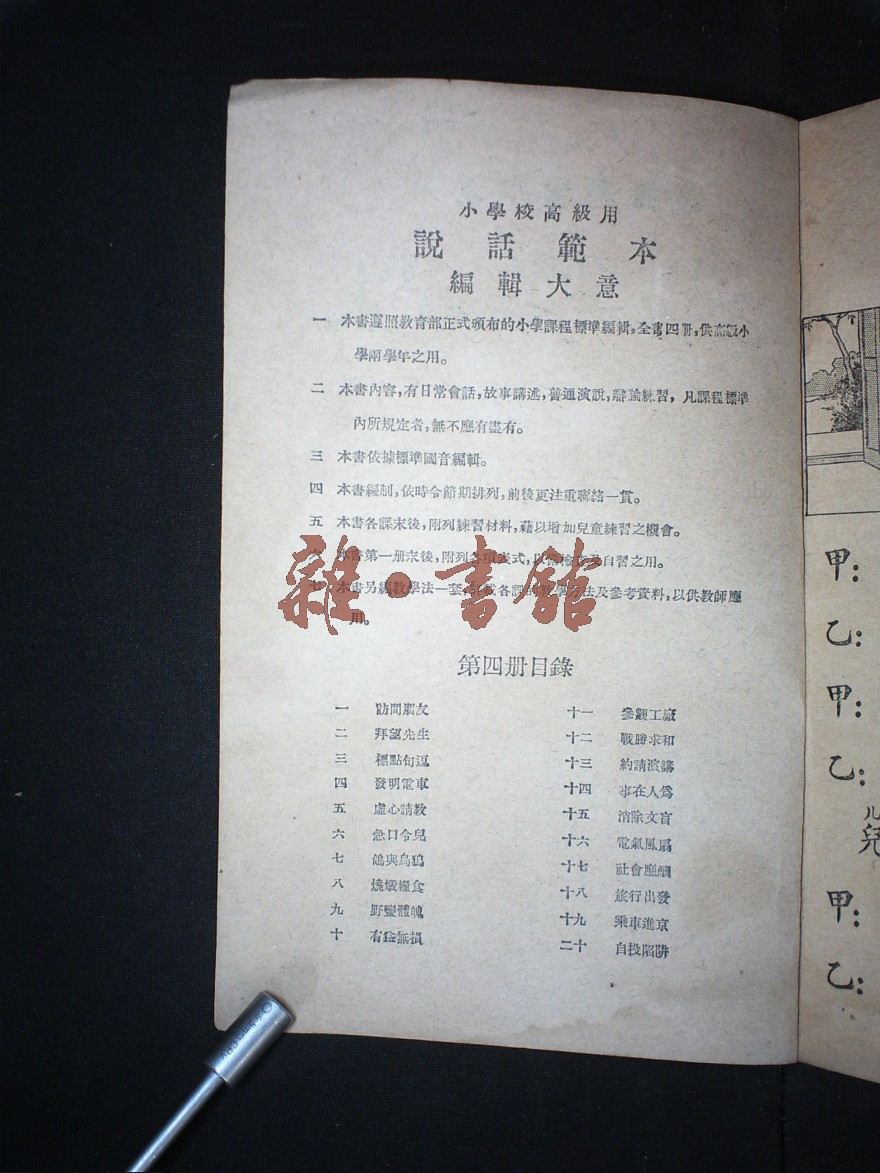 小學校高級用
說話範本
編輯大意
一 本書遵照教育部正式頒布的小學課程標準編輯,全書四册,供高級小
學兩學年之用。
二 本書內容,有日常會話,故事講述,普通演說,辯論練習,凡課程標準
內所規定者,無不應有盡有。
三 本書依據標準國音編輯。
四 本書編制,依時令節期排列,前後更注重聯絡一貫。
五 本書各課末後,附列練習材料,藉以增加兒童練習之機會。
六 本書第一册末後,附列各項表式,以備檢查及自習之用。
七 本書另編教學法一套,詳載各課的教學方法及參考資料,以供教師應
用。
雜·書館
第四册目錄
一 訪問朋友
二 拜望先生
三 標點句逗
四 發明電車
五 虛心請教
六 急口令兒
七 鴿與烏鴉
八 燒燬糧食
九 野蠻體魄
十 有益無損
十一 參觀工廠
十二 戰勝求和
十三 約請演講
十四 事在人爲
十五 消除文盲
十六 電氣風扇
十七 社會應酬
十八 旅行出發
十九 乘車進京
二十 自投陷阱
甲:
乙:
甲:
乙:
兒
甲:
乙: